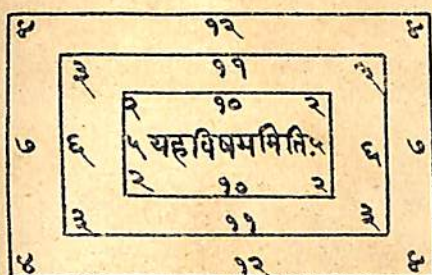 ४ १२ ४
३ ११ ३
२ १० २
७ ६ ५ यहविषममिति ५ ६ ७
२ १० २
३ ११ ३
४ १२ ४